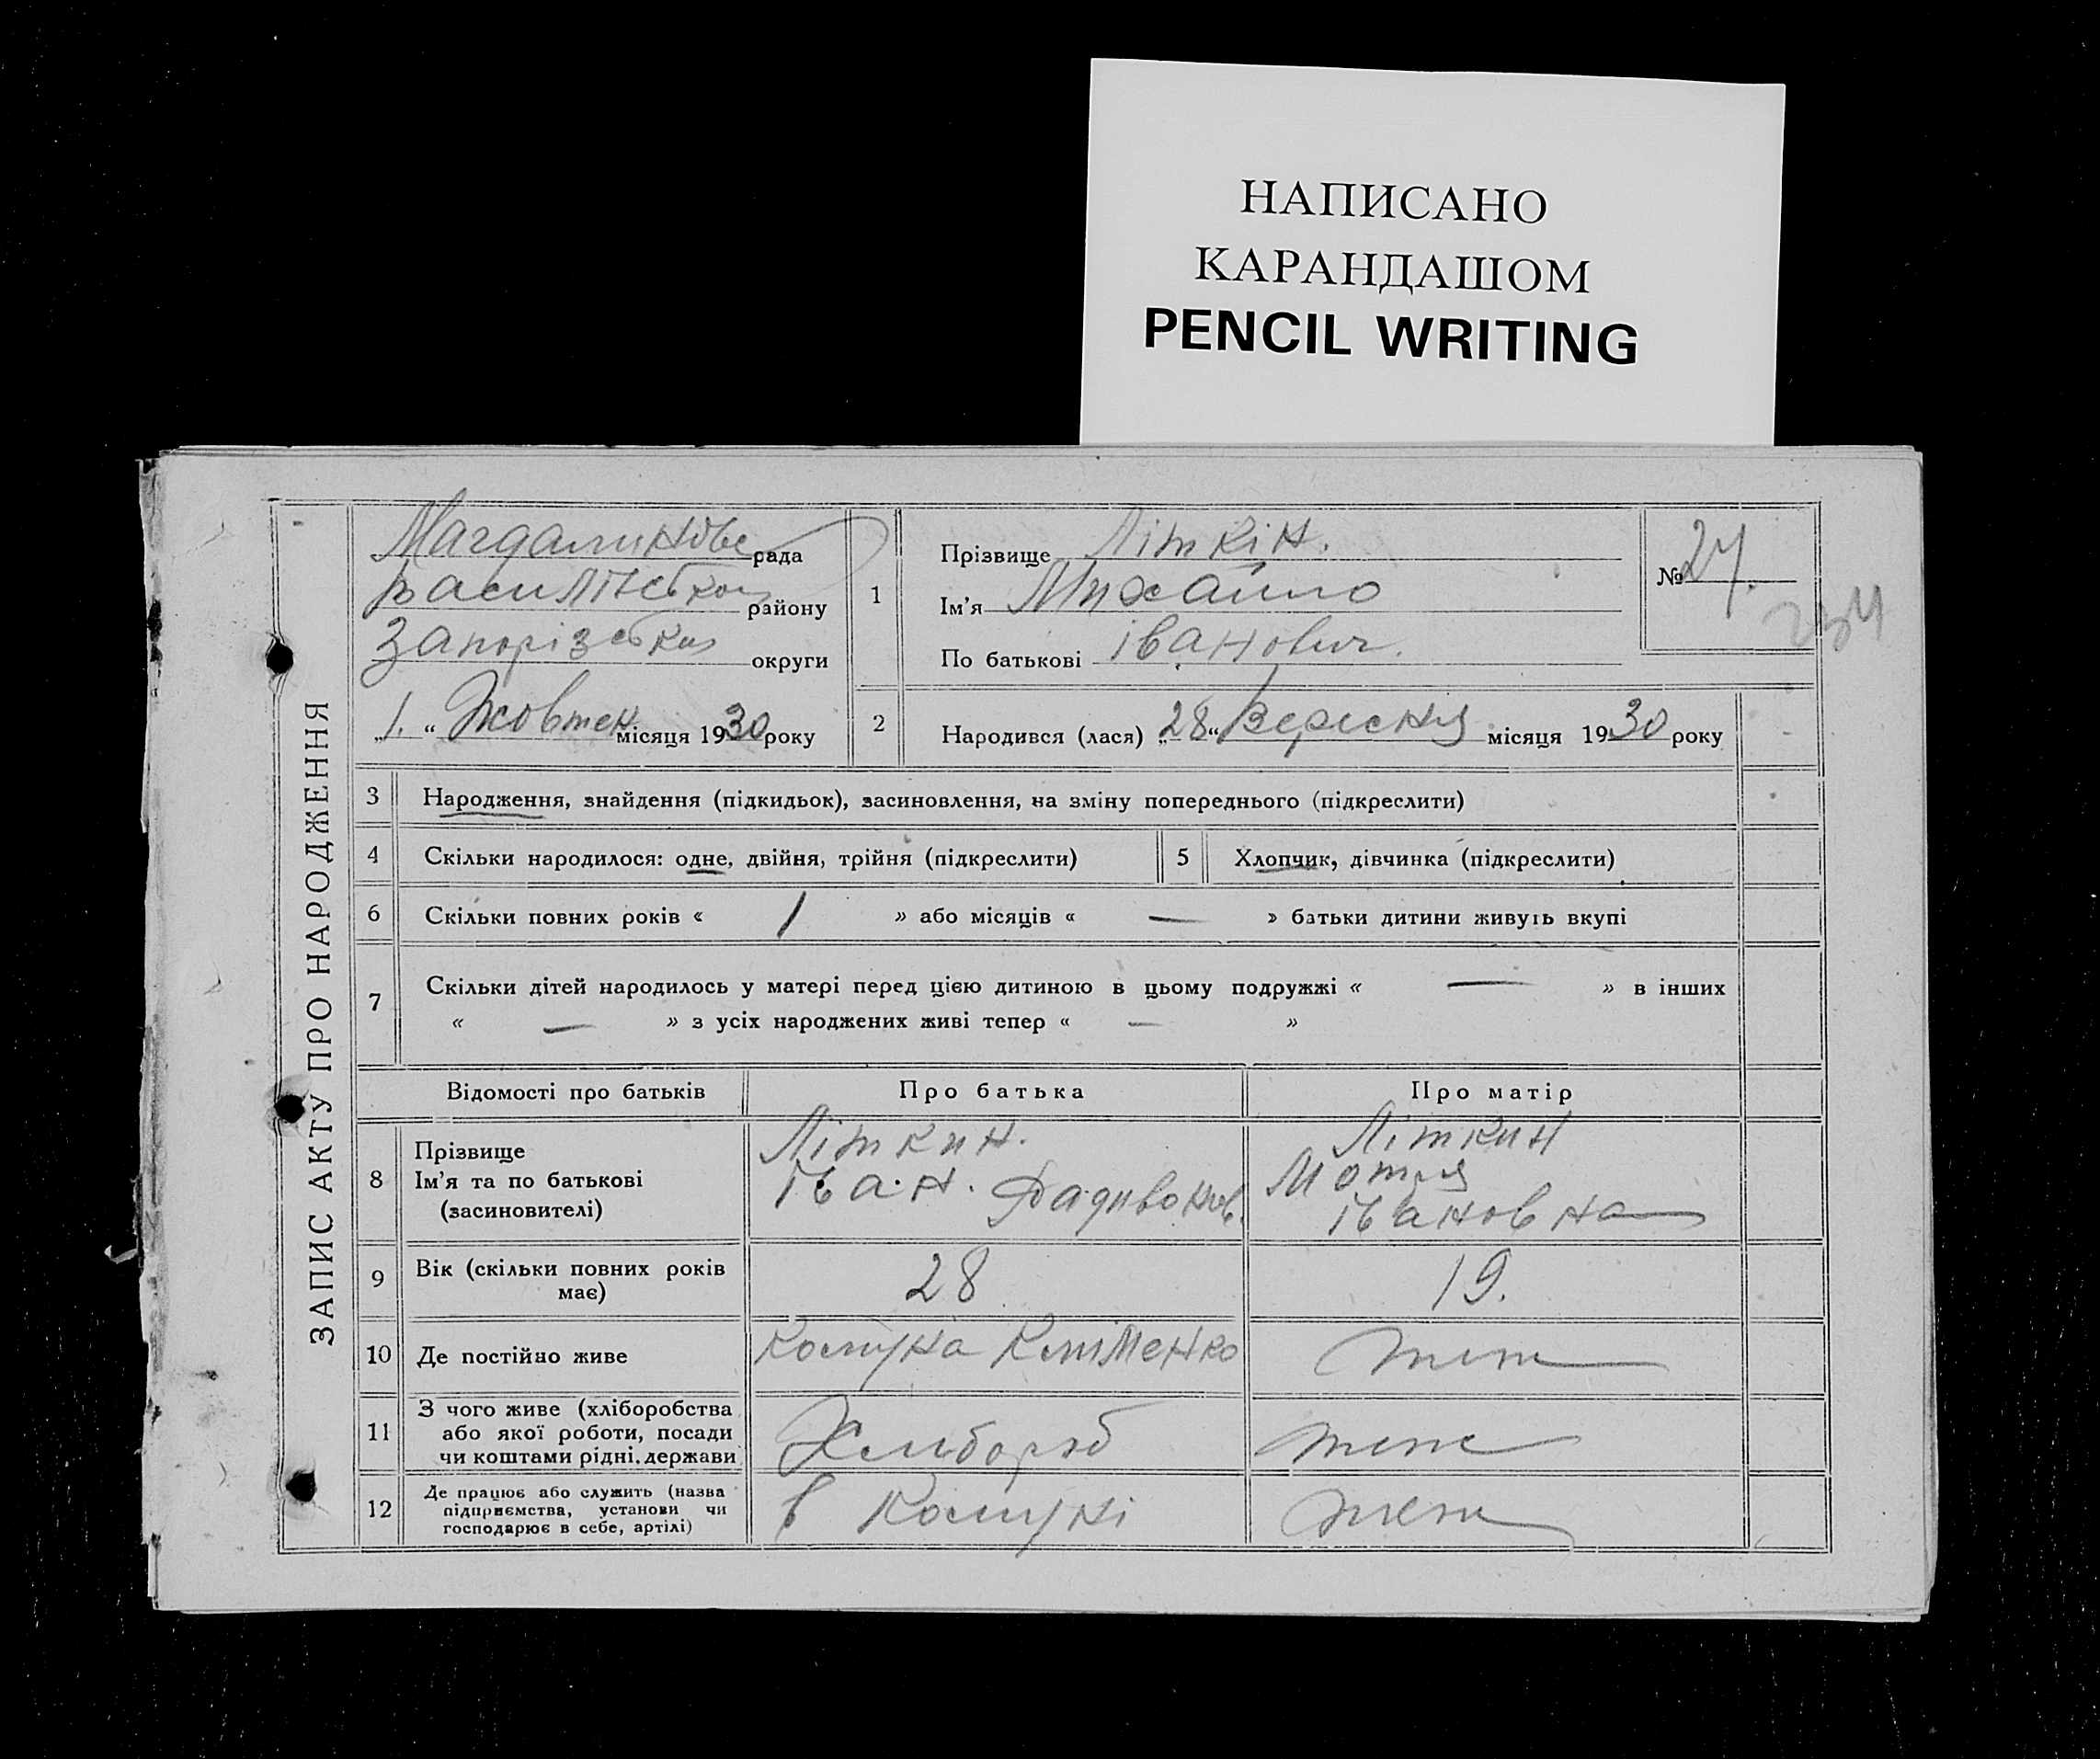 НАПИСАНО
КАРАНДАШОМ
PENCIL WRITING
ЗАПИС АКТУ ПРО НАРОДЖЕННЯ
Магдалинове рада
району
Запорізька округи
„1.“ Жовтен місяця 1930 року
1
Прізвище Літкін.
Ім'я Михайло
По батькові Іванович.
№ 24.
234
2 Народився (лася) „28“ Вересня місяця 1930 року
3 Народження, знайдення (підкидьок), засиновлення, на зміну попереднього (підкреслити)
4 Скільки народилося: одне, двійня, трійня (підкреслити) 5 Хлопчик, дівчинка (підкреслити)
6 Скільки повних років « 1 » або місяців « — » батьки дитини живуть вкупі
7 Скільки дітей народилось у матері перед цією дитиною в цьому подружжі « — » в інших
« — » з усіх народжених живі тепер « — »
Відомості про батьків Про батька Про матір
8 Прізвище
Ім'я та по батькові
(засиновителі)
Літкин.
Іван.
Літкин
Мотря
Івановна
9 Вік (скільки повних років
має) 28 19.
10 Де постійно живе Комуна Кліменко теж
11 З чого живе (хліборобства
або якої роботи, посади
чи коштами рідні, держави
Хлибороб теж
12 Де працює або служить (назва
підприємства, установи чи
господарює в себе, артілі)
в Комуні теж